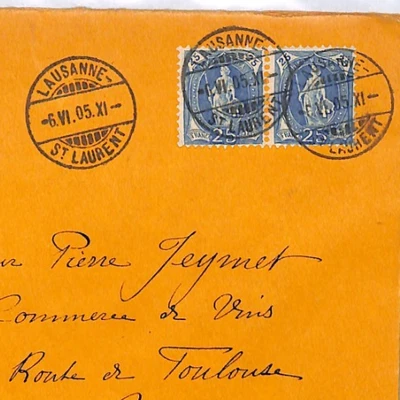 LAUSANNE-
-6.VI.05.XI-
ST LAURENT
LAUSANNE-
-6.VI.05.XI-
ST LAURENT
25 25
25
FRANCO
25 25
25
-6.VI.05.XI-
LAURENT
Pierre Jeymet
Commerce de Vins
Route de Toulouse